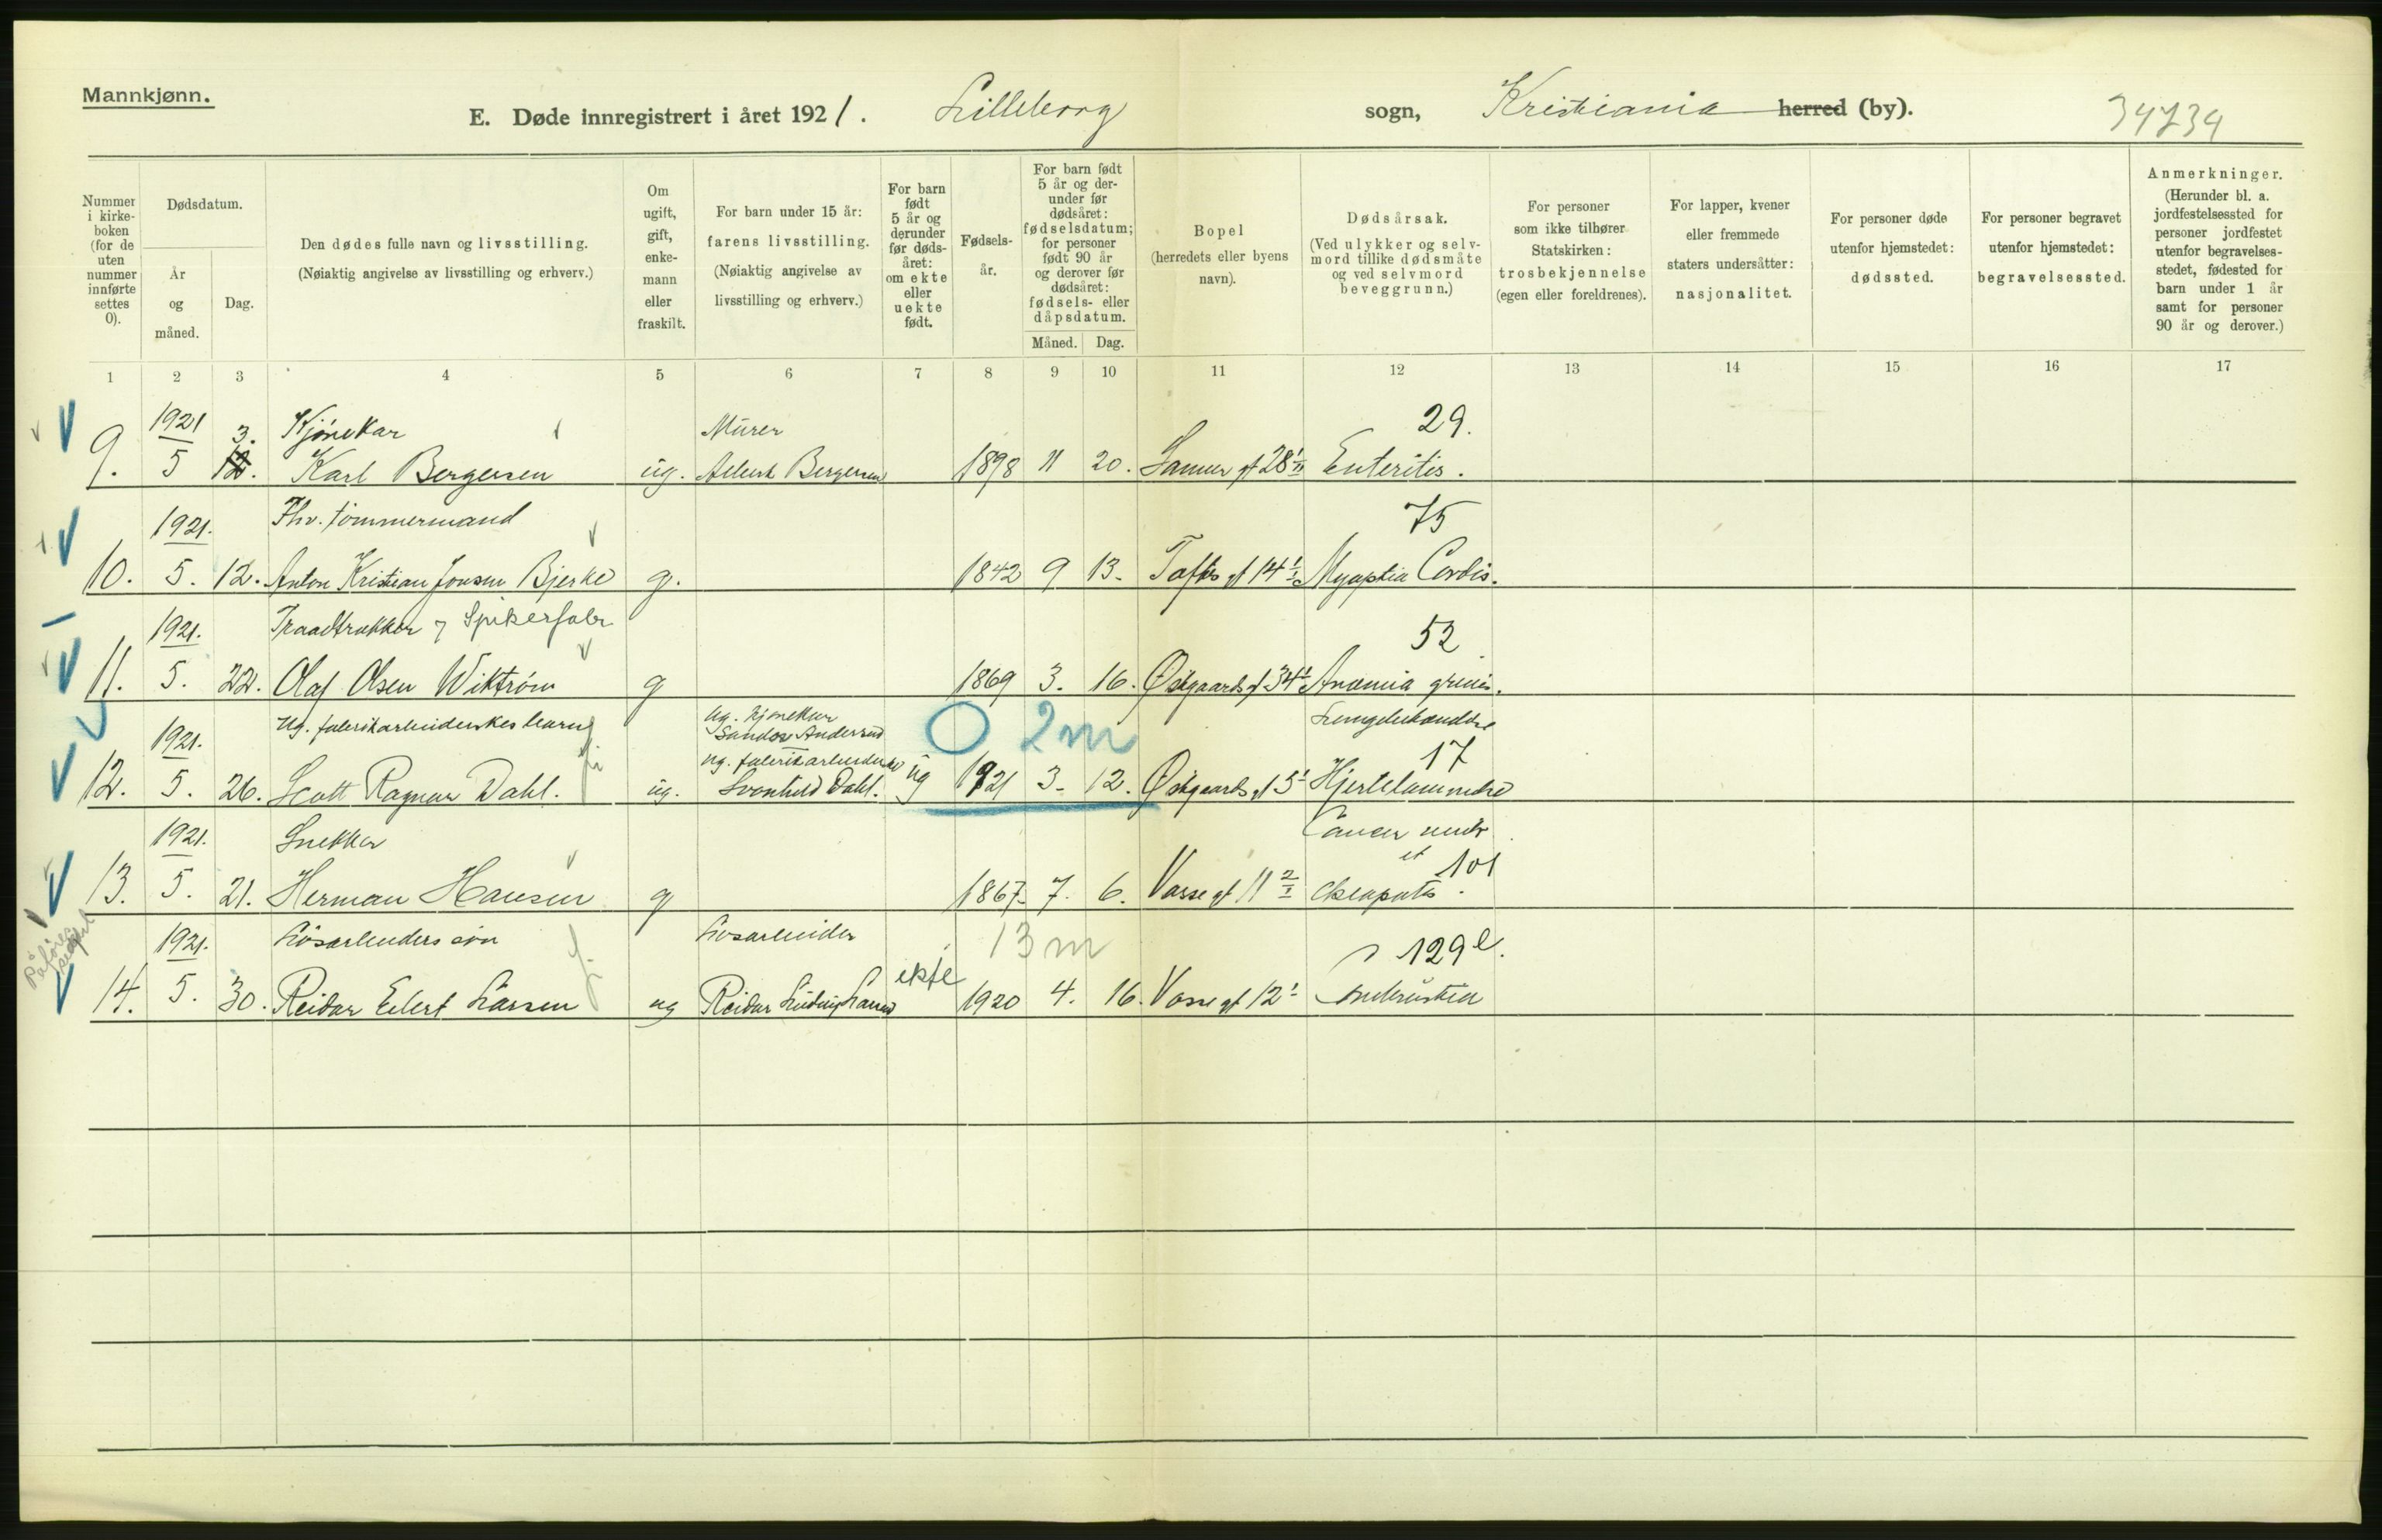 Mannkjønn.
E. Døde innregistrert i året 1921. Lilleborg sogn, Kristiania herred (by). 34734
Nummer i kirke- boken (for de uten nummer innførte settes 0).
Dødsdatum.
År og måned.
Dag.
Den dødes fulle navn og livsstilling.
(Nøiaktig angivelse av livsstilling og erhverv.)
Om ugift, gift, enke- mann eller fraskilt.
For barn under 15 år: farens livsstilling.
(Nøiaktig angivelse av livsstilling og erhverv.)
For barn født 5 år og derunder før døds- året: om ekte eller uekte født.
Fødsels- år.
For barn født 5 år og der- under før dødsåret: fødselsdatum; for personer født 90 år og derover før dødsåret: fødsels- eller dåpsdatum.
Måned. Dag.
Bopel
(herredets eller byens navn).
Dødsårsak.
(Ved ulykker og selv- mord tillike dødsmåte og ved selvmord beveggrunn.)
For personer som ikke tilhører Statskirken: trosbekjennelse (egen eller foreldrenes).
For lapper, kvener eller fremmede staters undersåtter: nasjonalitet.
For personer døde utenfor hjemstedet: dødssted.
For personer begravet utenfor hjemstedet: begravelsessted.
Anmerkninger.
(Herunder bl. a. jordfestelsessted for personer jordfestet utenfor begravelses- stedet, fødested for barn under 1 år samt for personer 90 år og derover.)
1 2 3 4 5 6 7 8 9 10 11 12 13 14 15 16 17
1921 3. Kjørekar Murer 29.
9. 5 12. Karl Bergersen ug. Albert Bergersen 1898 11 20. 28 Enteritis.
1921. Fhv. tømmermand 75
10. 5. 12. Anton Kristian Jonsen Bjerke g. 1842 9 13. Toftes gt 14 Cordis.
1921. Traadtrekker Spikerfabr 52
11. 5. 22. Olaf Olsen Wiktrøm g 1869 3. 16. Østgaards gt 34 Anæmia
1921. Ug. fabrikarbeiderskes barn Ug. kjørekar 2 m Lungebetændelse
Sandor Anderssen
ug. fabrikarbeiderske 17
12. 5. 26. Scott Ragnar Dahl. ug. Svanhild Dahl. ug 1921 3. 12. Østgaards gt 5 Hjertelammelse
1921. Snekker Cancer ventr
et 101
13. 5. 21. Herman Hansen g 1867. 7. 6. Vosse gt 11 2/I
1921. Løsarbeiders søn Løsarbeider 13 m 129 l.
14. 5. 30. Reidar Eilert Larsen ug Reidar Ludvig Larsen ekte 1920 4. 16. Vosse gt 12